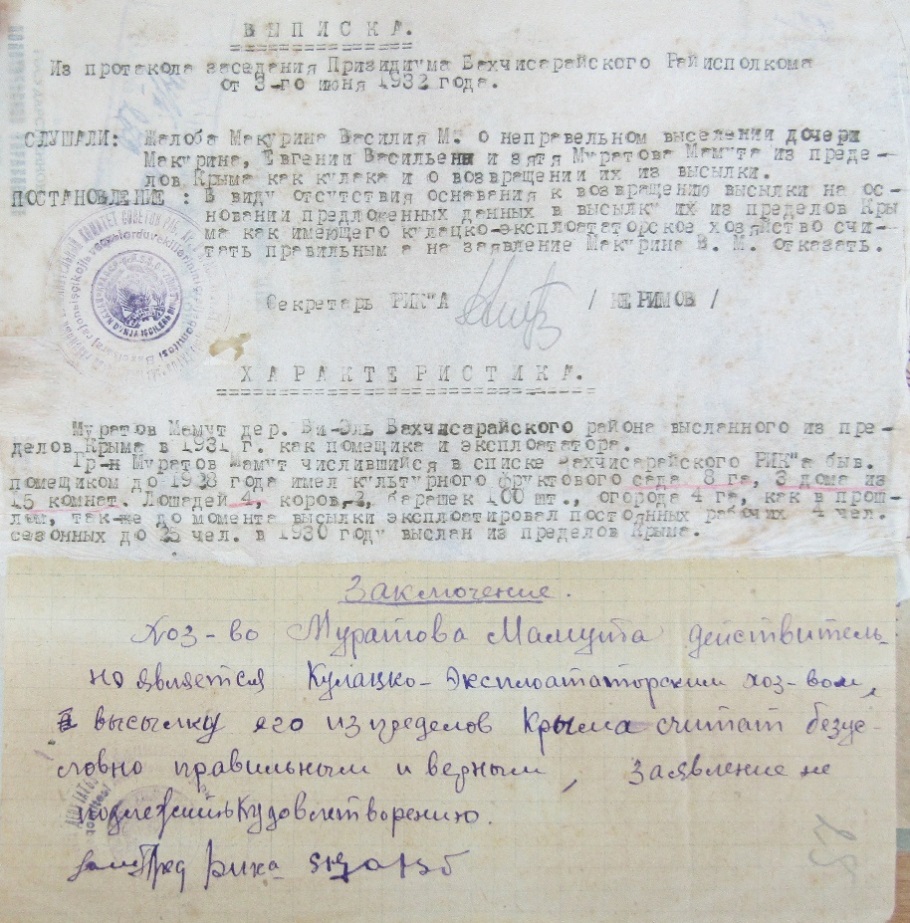 ВЫПИСКА.
Из протакола заседания Призидиума Бахчисарайского Райисполкома
от 3-го июня 1932 года.
СЛУШАЛИ: Жалоба Макурина Василия М. о неправельном выселении дочери
Макурина, Евгении Васильени и зятя Муратова Мамута из преде-
лов Крыма как кулака и о возвращении их из высылки.
ПОСТАНОВЛЕНИЕ : В виду отсутствия оснавания к возвращению высылки на ос-
новании предложенных данных в высылку их из пределов Кры
ма как имеющего кулацко-эксплоататорское хозяйство счи-
тать правильным а на заявление Макурина В. М. отказать.
Секретарь РИК"А / КЕРИМОВ /
ХАРАКТЕРИСТИКА.
Муратов Мамут дер. Би-Эль Бахчисарайского района высланного из пре-
делов Крыма в 1931 г. как помещика и эксплоататора.
Гр-н Муратов Мамут числившийся в списке Бахчисарайского РИК"а быв.
помещиком до 1928 года имел культурного фруктового сада 8 га, 3 дома из
15 комнат. Лошадей 4, коров, 2, барашек 100 шт., огорода 4 га, как в прош-
лым, так-же до момента высылки эксплоатировал постоянных рабочих 4 чел.
сезонных до 25 чел. в 1930 году выслан из пределов Крыма.
Заключение.
Хоз-во Муратова Мамута действитель-
но является Кулацко-Эксплоататорским хоз-вом,
высылку его из пределов Крыма считат безус-
ловно правильным и верным, заявление не
подлежить Кудовлетворению.
Зам Пред рика